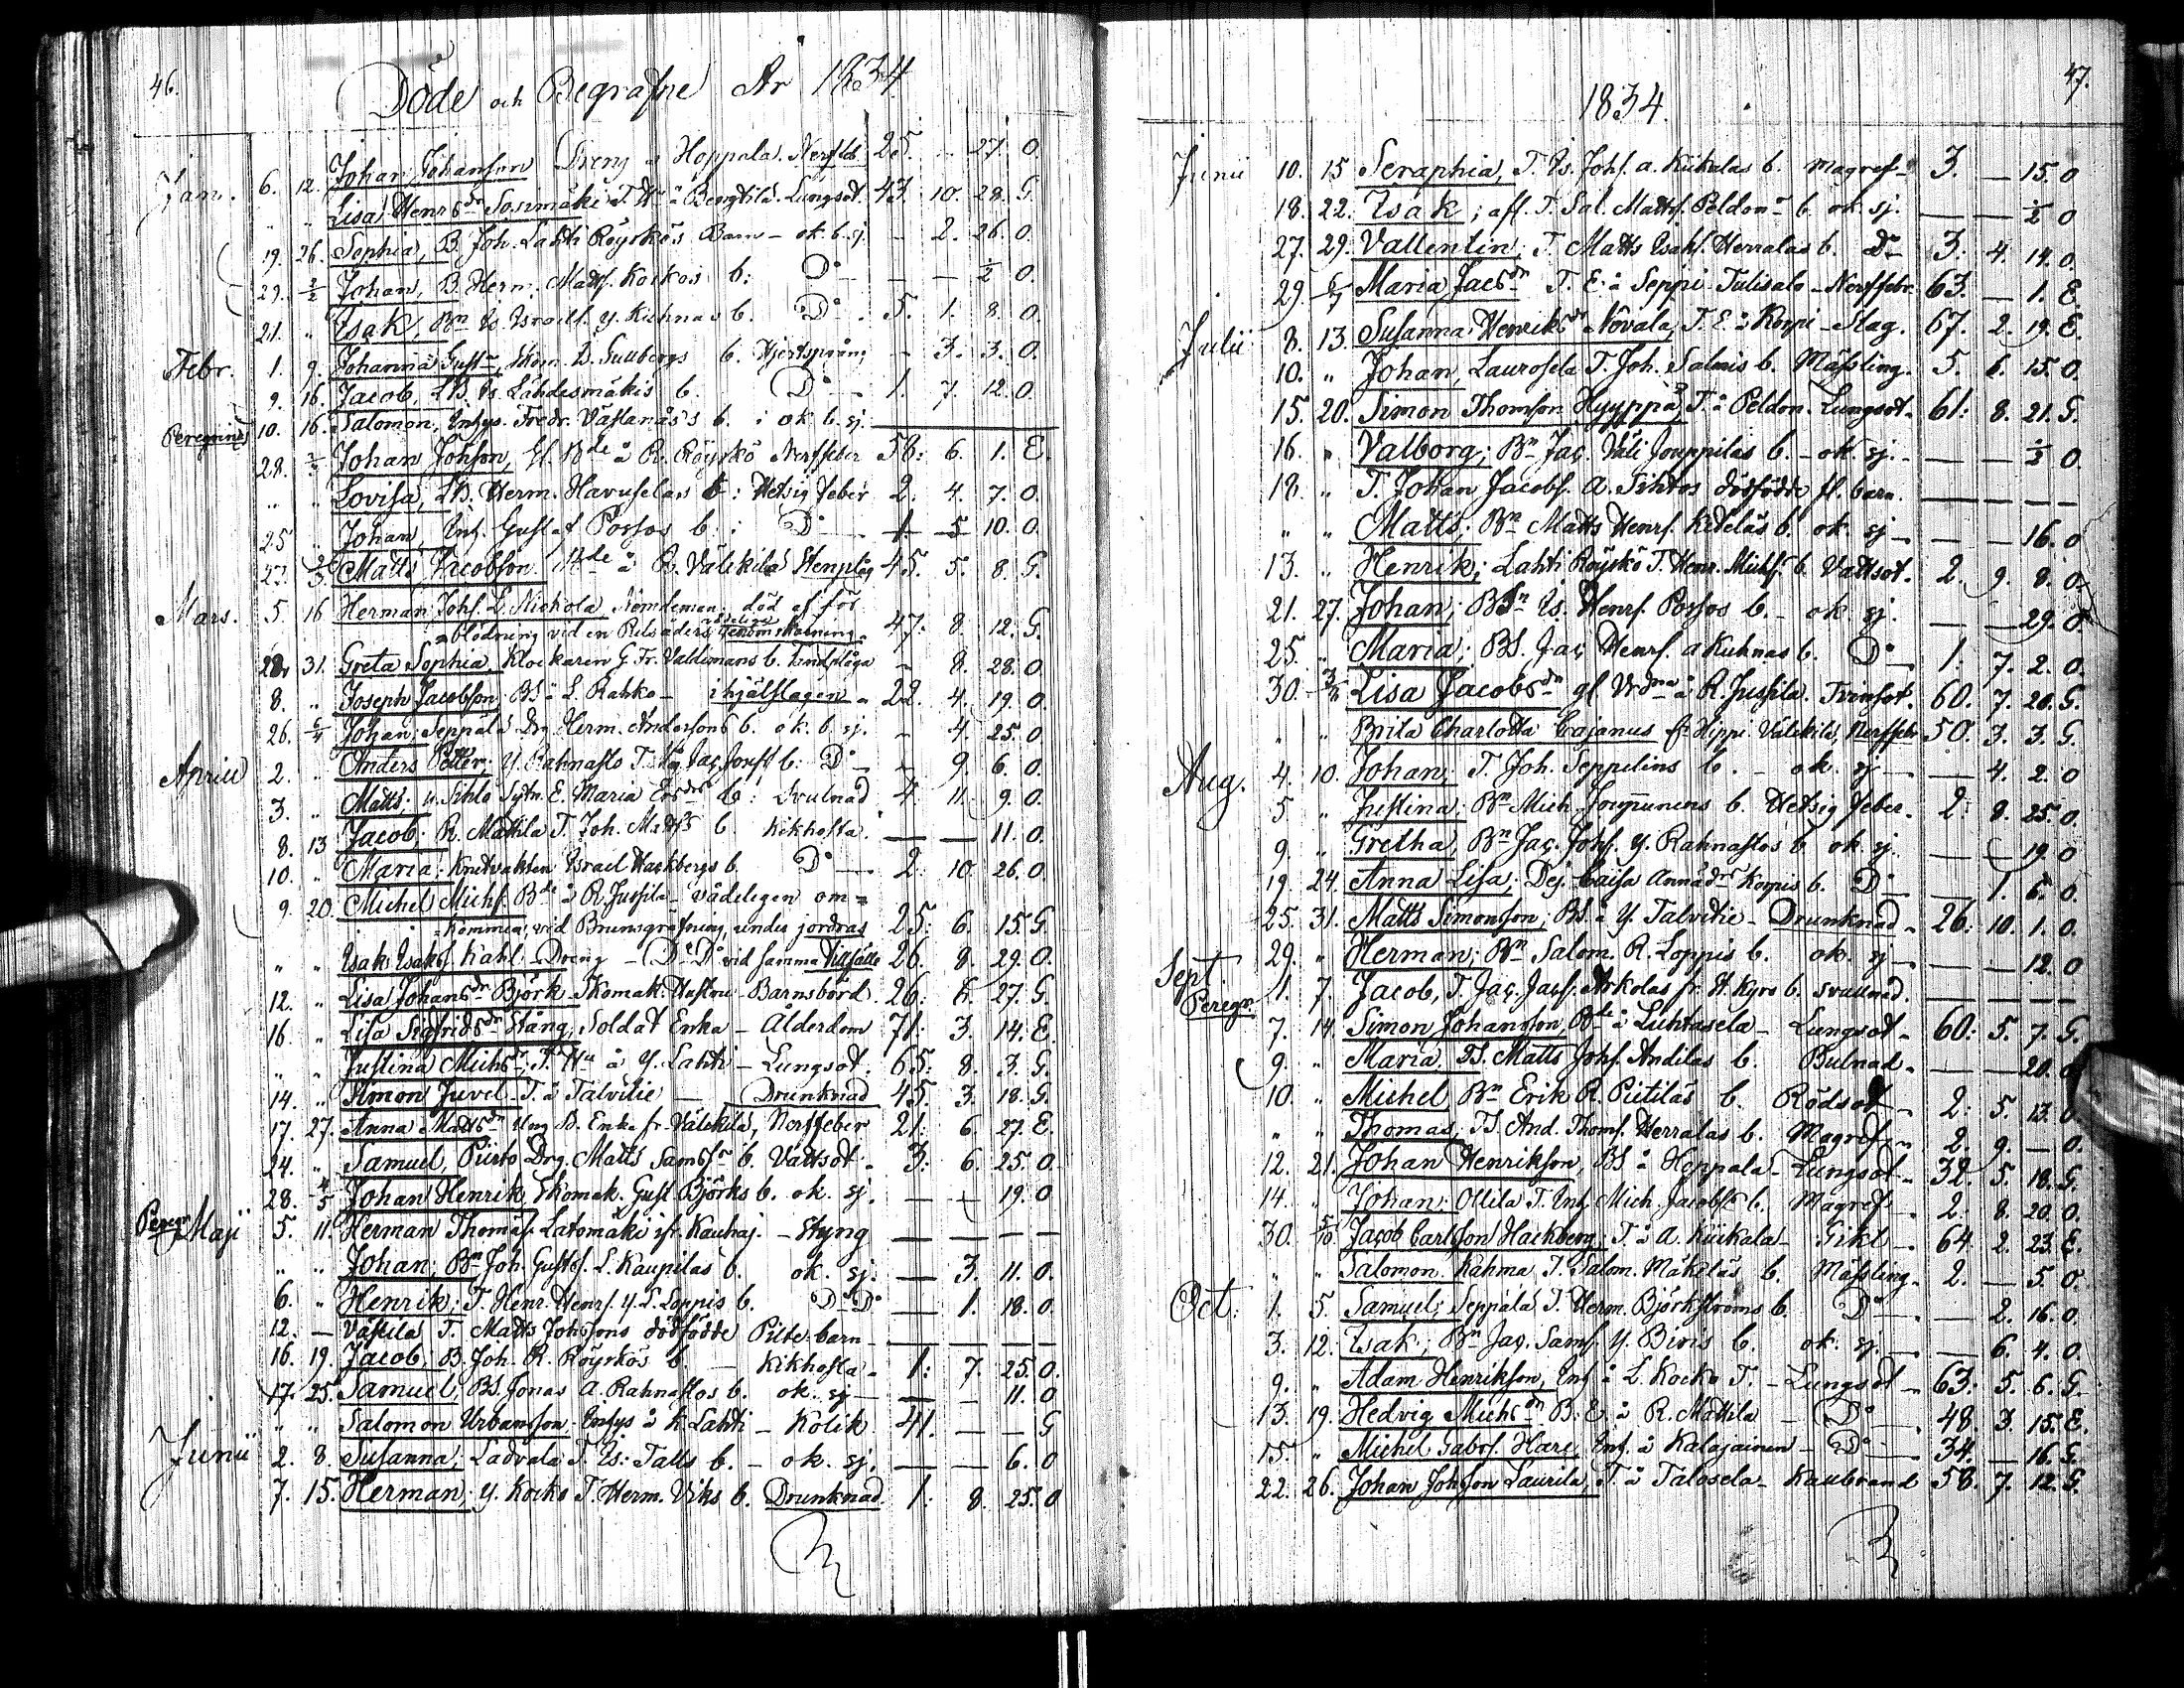 46.
Döde och Begrafne År 1834
Jan. 6. 12. Johan Johansson Dreng å Hoppala. Nerffeb 25. – 27. O.
" " Lisa Henrsdr Sosimäki T. Hu å Bengtilä. Lungsot 43. 10. 28. G.
19. 26. Sophia, B. Joh. Lahti Röyskös Barn – ok. b. sj. – 2. 26. O.
29. 2/2 Johan, B. Herm. Matts. Kockos b: Do – – 1/2 O.
21. " Isak, Bn Is. Israels. y. Kuhnas b. Do 5. 1. 8. O.
Febr. 1. 9. Johanna Gust Is. Gullbergs b. Hjertsprång – 3. 3. O.
9. 16. Jacob, LB. Is. Lähdesmäkis b. Do 1. 7. 12. O.
Peregrinus 10. 16. Salomon, Inhys. Fredr. Västanås's b. i ok. b. sj.
28. 2/3 Johan Johsson, Gl. Bde å R. Röyskö Nerffeber 58: 6. 1. E.
" " Lovisa, LB. Herm. Havuselas b: Hetsig feber 2. 4. 7. O.
25 " Johan, Inh. Gustaf Possos b: Do 1. 5 10. O.
27. 2/3. Matts Jacobsson Bde å R. Välikilä Stenplåg 45. 5. 8. G.
Mars. 5. 16 Herman Johs. L. Nickola Nämdeman, död af för=
=blödning vid en Pulsåders vådelige genomskärning. 47: 8. 12. G.
22. 31. Greta Sophia, Klockaren G. Fr. Valdemans b. – 8. 28. O.
8. " Joseph Jacobsson BS å L. Rahko – ihjälslagen 22. 4. 19. O.
26. 6/4 Johan, Seppälä Drg Herm. Anderssons b. ok. b. sj. – 4. 25. O
Aprill 2. " Anders Petter; y. Rahnasto T. Jac. b. Do – 9. 6. O.
3. " Matts; y. Sihto Sytn. E. Maria Ersdrs b: Svulnad 4. 11. 9. O.
8. 13 Jacob; R. Mattila T. Joh. Matts b. Kikhosta. – – 11. O.
10. " Maria; Knektvakten Israel Hackbergs b. Do 2. 10. 26. O.
9. 20. Michel Michs. Bde å R. Jussila – vådeligen om=
=kommen, vid Brunnsgräfning, under jordras 25: 6. 15. G
" " Isak Isaks. Kahl: Dreng – Do Do vid samma tillfälle 26. 8. 29. O.
12. " Lisa Johansdr Björk Skomak: Hustru – Barnsbörd. 26: 6. 27. G.
16. " Lisa Sigfridsdr Stång, Soldat Enka – Ålderdom 71: 3. 14. E.
" " Justina Michsdr, T. Hu å y. Lahti – Lungsot. 65: 8. 3. G.
14. " Simon Juvel T. å Talvitie – Drunknad 45. 3. 18. G.
17. 27. Anna Mattsdr Ung B. Enka fr. Välikilä, Nerffeber 21: 6. 27. E.
24. " Samuel, Piirto Drg. Matts Samss b. Vattsot. 3. 6. 25. O.
28. 4/5 Johan Henrik, Skomak. Gust Björks b. ok. sj. – – 19. O
Peregr Maji 5. 11. Herman Thomas. Latomäki ifr. Kauhaj. – Styng – – – –
" " Johan; Bn Joh. Gusts. L. Kaupilas b. ok. sj. – 3. 11. O.
6. " Henrik: T. Henr. Henrs. y. L. Loppis b. Do Do – 1. 18. O.
12. – Västilä T. Matts Johssons dödfödde Pilte barn – – – –
16. 19. Jacob; B. Joh. R. Röyskös b. – Kikhosta. 1: 7. 25. O.
17. 25. Samuel, BS. Jonas A. Rahnastos b. ok. sj – – – 11. O
" " Salomon Urbansson. Inhys å K. Lahti – Kolik 41. – – G
Junii 2. 8. Susanna; Ladvala T. Is. Talls b. – ok. sj. – – 6. O
7. 15. Herman; y. Kocko T. Herm. Viks b. Drunknad. 1: 8. 25. O
47.
1834.
Junii 10. 15 Seraphia, T. Is. Johs. a. Kiikalas b. Magref – 3. – 15. O
18. 22. Isak; afl. T. Sal. Matts. Peldon b. ok. sj. – – 1/2 O
27. 29. Vallentin; T. Matts Isaks. Herralas b. Do 3. 4. 14. O.
29. 6/7 Maria Jacsdr T. E. å Seppi Tulisalo – Nerffebr. 63. – 1. E.
Julii 8. 13. Susanna Henriksdr Nåvala, T. E. å Korpi – Slag. 67. 2. 19. E.
10. " Johan, Laurosela T. Joh. Salmis b. Mässling. 5. 6. 15. O.
15. 20. Simon Thomsson Hyyppä, T. å Peldon. Lungsot. 61: 8. 21. G.
16. " Valborg; Bn Jac. Väli Jouppilas b. – ok sj. – – 1/2 O.
18. " T. Johan Jacobs. A. Sihtos dödfödde fl. barn. – – – –
" " Matts; Bn Matts Henrs. Keteläs b. ok. sj – – – 16. O
13. " Henrik; Lahti Röyskö T. Henr. Michs. b. Vattsot. 2. 9. 8. O.
21. 27. Johan; BSn Is. Henrs. Possos b. – ok. sj. – – 29. O.
25. " Maria; BS. Jac Henrs. a Kuhnas b. Do 1: 7. 2. O.
30. 3/8 Lisa Jacobsdr gl. Vrdna å R. Jussila. Tvinsot. 60. 7. 20. G.
" " Brita Charlotta Cajanus Hippi Välikilä, Nerffebr 50. 3. 3. G.
Aug. 4. 10. Johan; T. Joh. Seppelins b. – ok. sj – – 4. 2. O
5 " Justina; Bn Mich. Jouppunens b. Hetsig feber. 2: 8. 25. O.
9. " Gretha, Bn Jac. Johs. y. Rahnastos b. ok. sj. – – 19. O
19. 24. Anna Lisa; Dej. Caisa Annädrs Korpis b. Do – 1. 6. O.
25. 31. Matts Simonsson; BS. å y. Talvitie – Drunknad. 26: 10. 1. O.
29. " Herman; Bn Salom. R. Loppis b. ok. sj – – – 12. O
Sept. Peregr. 1. 7. Jacob, T. Jac. Jacs. Arkolas fr. St. Kyro b. svallnad – – – –
7. 14. Simon Johansson, Bde å Luhtasela – Lungsot – 60: 5. 7. G.
9. " Maria. TS. Matts Johs. Andilas b. Bulnad. – – 20. O.
10. " Michel Bn Erik R. Pietiläs b. Rödsot – 2: 5. 13. O
" " Thomas; TS. And. Thoms. Herralas b. Magref – 2. 9. – O.
12. 21. Johan Henrikson, BS å Heppala – Lungsot – 32. 5. 18. G.
14. " Johan; Ollila T. Inh. Mich. Jacobss b. Magref – 2: 8. 20. O.
30. 5/10 Jacob Carlsson Hackberg; T. å A. Kiikala – Gikt – 64. 2. 23. E.
" " Salomon. Kahma T. Salom. Mäkeläs b. Mässling. 2. – 5. O.
Oct. 1. 5. Samuel; Seppälä T. Herm. Björkströms b. Do – 2. 16. O.
3. 12. Isak; Bn Jac. Sams. y. Biris b. ok. sj. – 6. 4. O.
9. " Adam Henrikson, Inh å L. Kocko T. – Lungsot – 63: 5. 6. G.
13. 19. Hedvig Michsdr B. E. å R. Mattila – Do 48. 3. 15. E.
15. " Michel Gabrs. Hare, Inh. å Kalajainen – Do 34. – 16. G.
22. 26. Johan Johsson Laurila, T. å Talosela – Kallbrand 58. 7. 12. G.